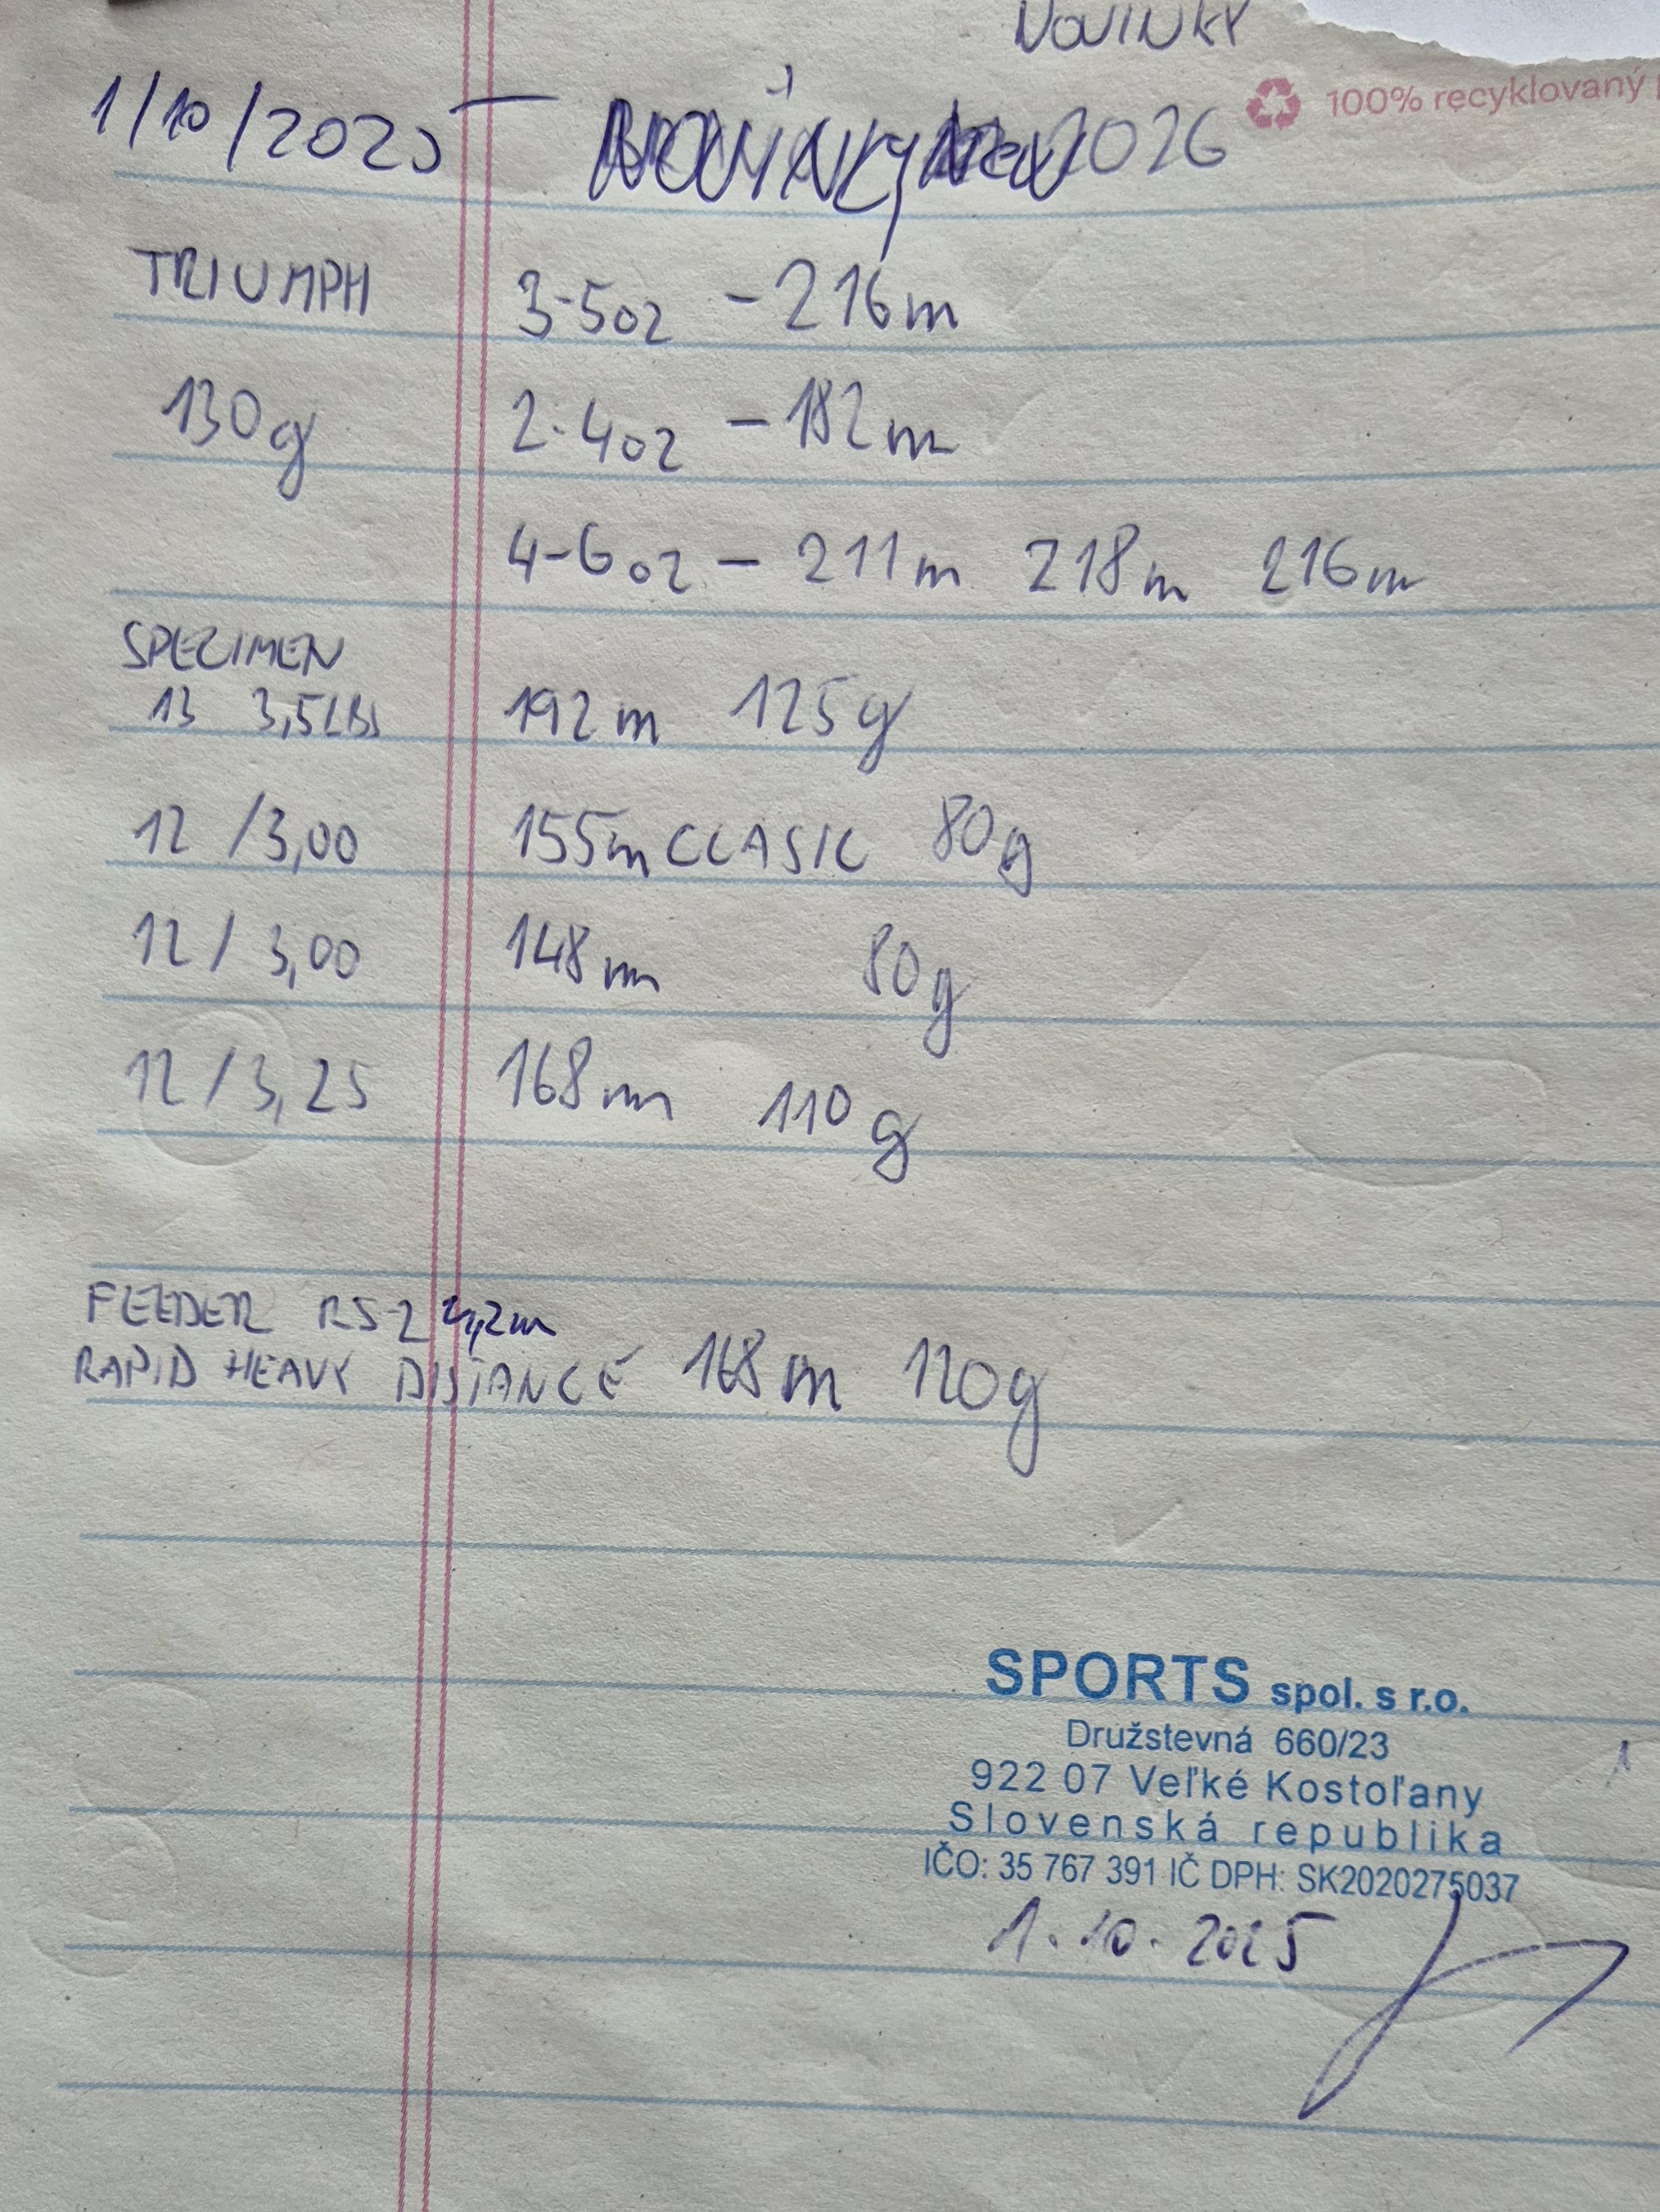 NOVINKY
100% recyklovaný
1/10/2025 2026
TRIUMPH 3-5oz - 216m
130g 2-4oz - 182m
4-6oz - 211m 218m 216m
SPECIMEN
13 3,5LBS 192m 125g
12 /3,00 155m CLASIC 80g
12 / 3,00 148m 80g
12 / 3,25 168m 110g
FEEDER RS2 4,2m
RAPID HEAVY DISTANCE 168m 120g
SPORTS spol. s r.o.
Družstevná 660/23
922 07 Veľké Kostoľany
Slovenská republika
IČO: 35 767 391 IČ DPH: SK2020275037
1.10.2025